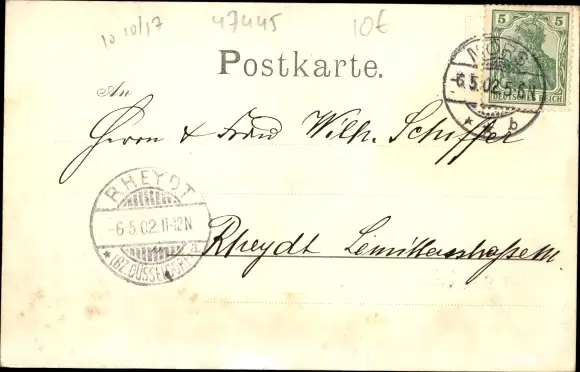 10 10/17 47445 10€
5 5
DEUTSCHES REICH
MÖRS
-6.5.02.5-6N
* b
Postkarte.
An
Herrn & Frau Wilh. Schiffer
RHEYDT
-6.5.02.11-12N
* (BZ. DÜSSELDORF) a
Rheydt